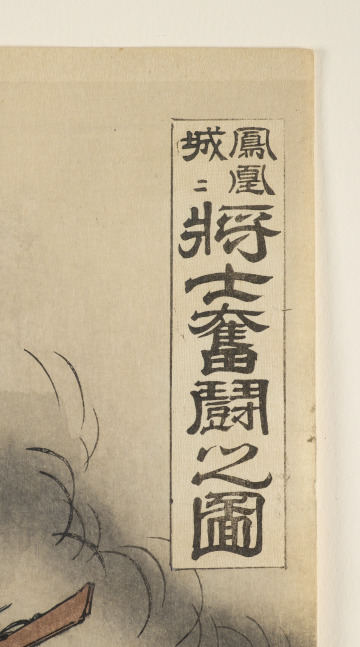 鳳凰
城ニ
將士奮鬪之圖